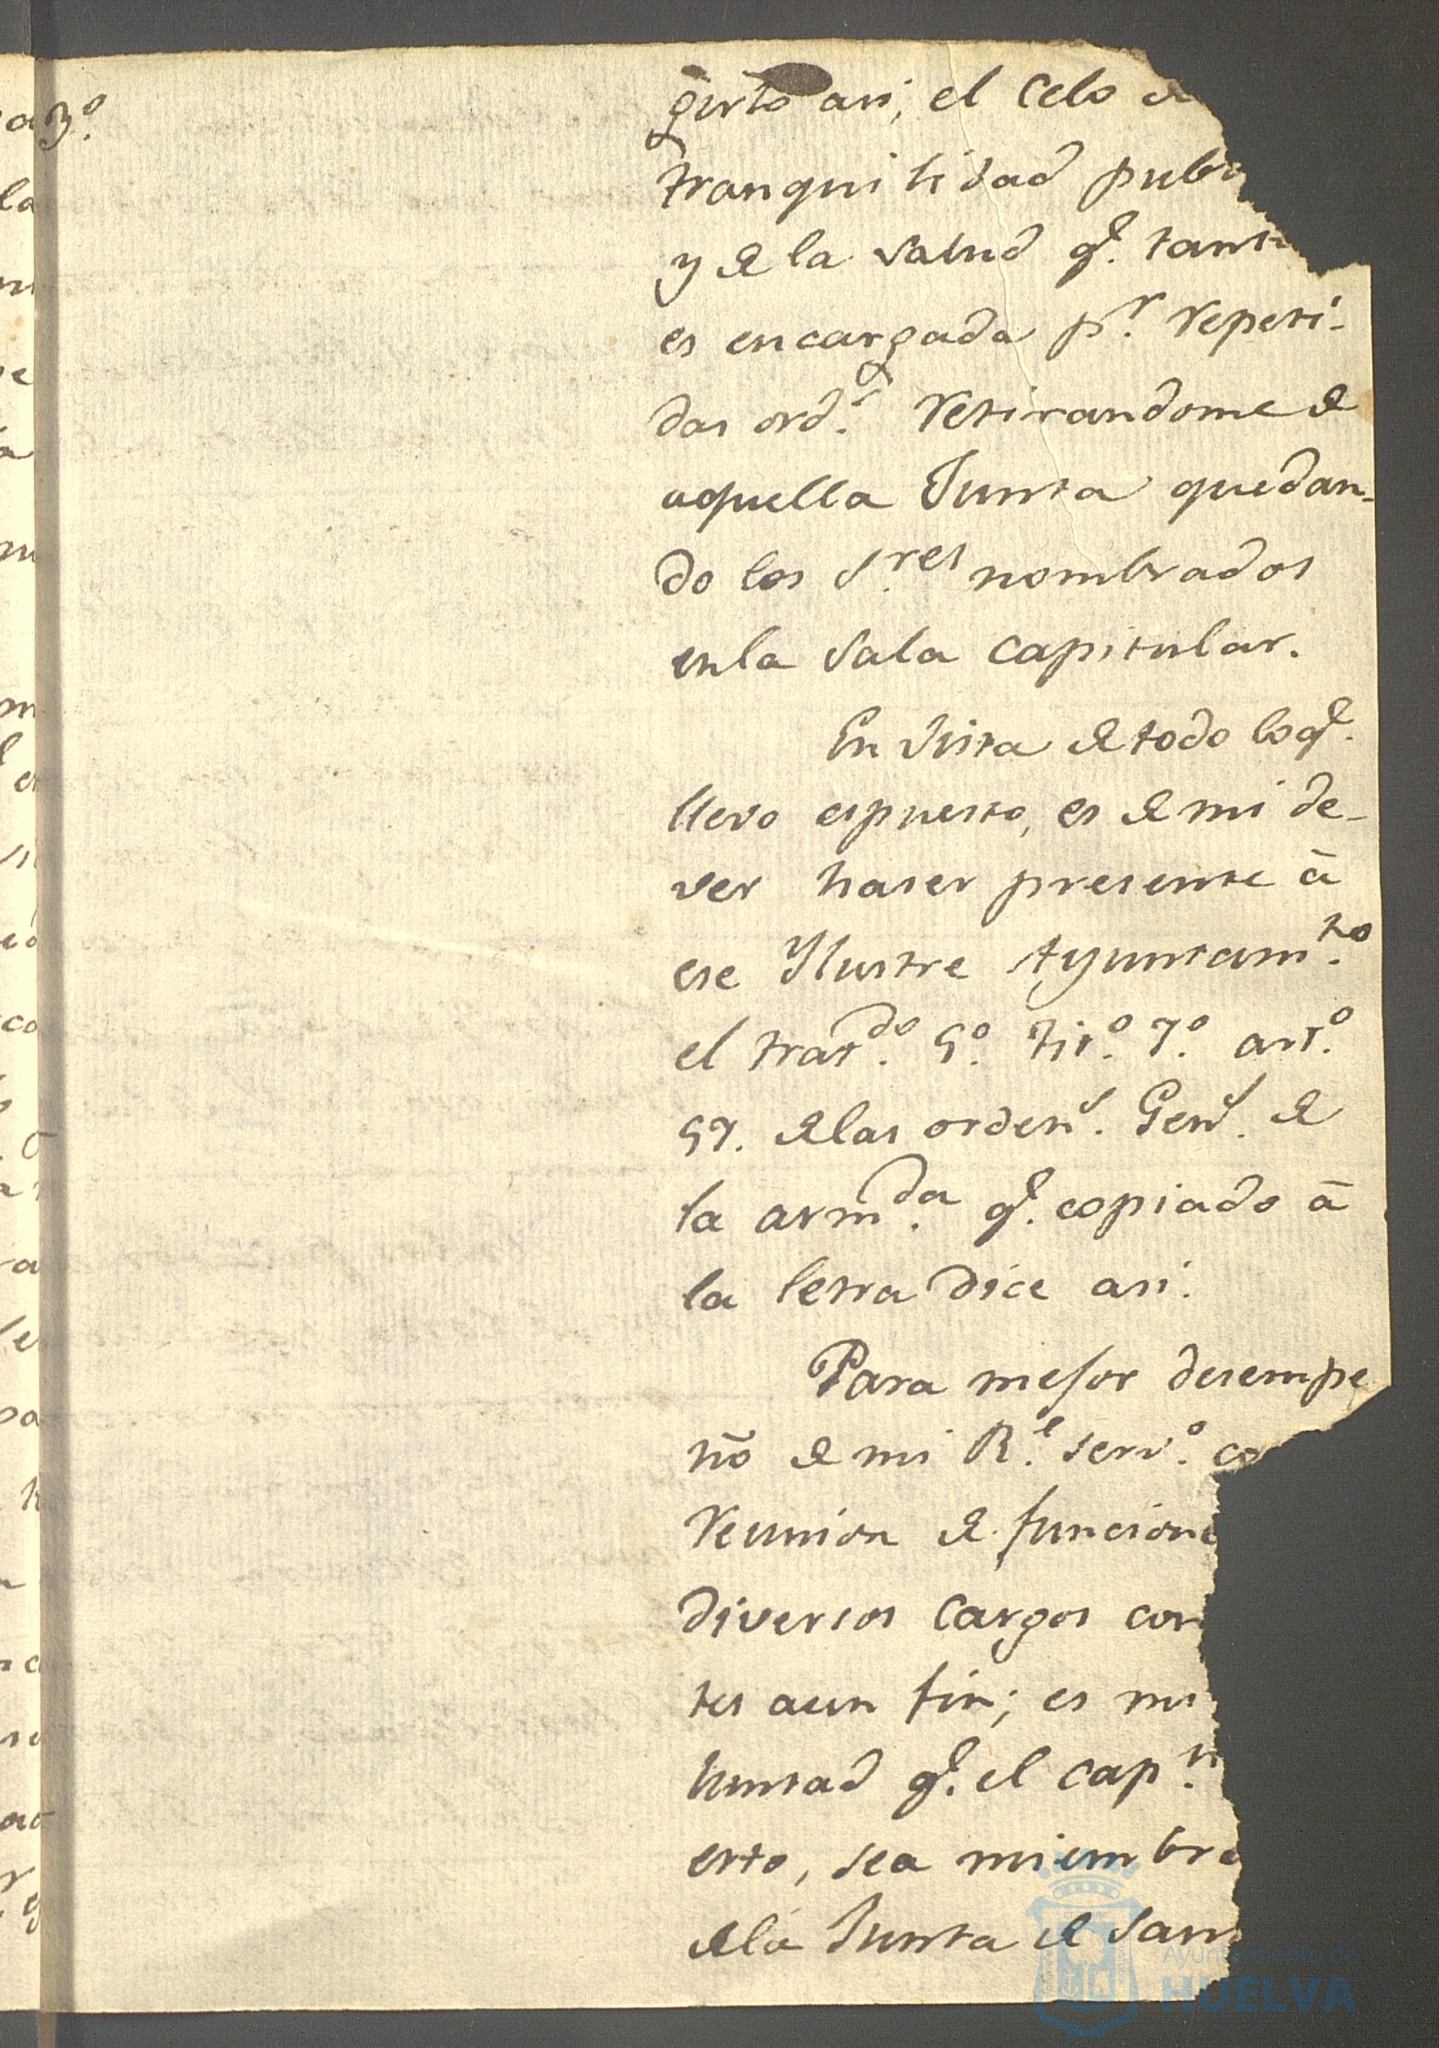 asi, el Celo de
tranquilidad pub
y de la Salud q.e tant
es encargada p.r repeti-
das ord.s retirandome de
aquella Junta quedan-
do los S.res nombrados
enla Sala capitular.
En vista de todo loq.e
llevo espuesto, es de mi de-
ver haser presente â
ese Ylustre Ayuntam.to
el trat.do 5.o tit.o 7.o art.o
57. delas orden.s Gen.s de
la arm.da q.e copiado â
la letra dice asi.
Para mejor desempe
ño de mi R.l serv.o co
reunion de funcione
diversos cargos con
tes aun fin; es mi
luntad q.e el cap.n
erto, sea miembro
dela Junta de Sani
3.o
Ayuntamiento de
HUELVA